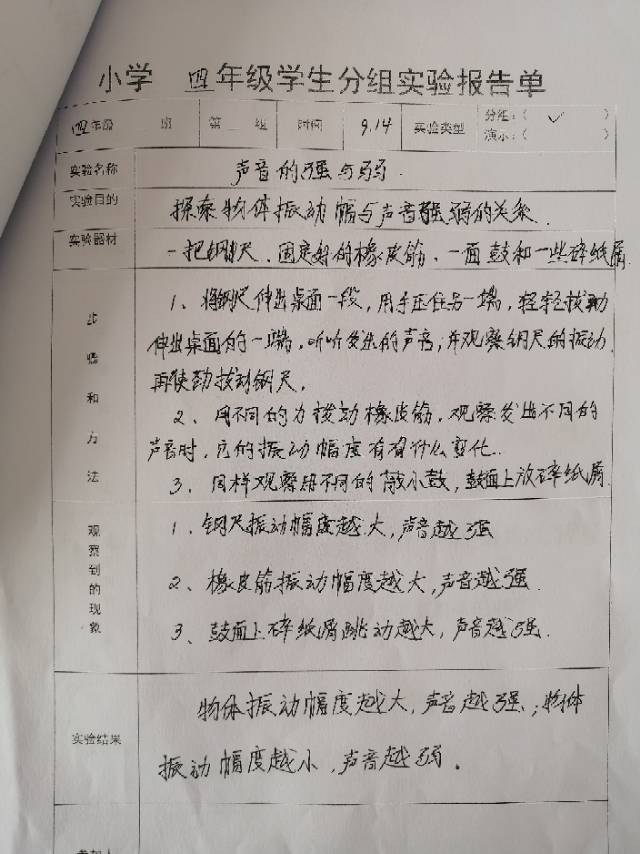 小学 四年级学生分组实验报告单
四年级 班 第 组 时间 9.14 实验类型 分组:( ✓ )
演示:( )
实验名称 声音的强与弱.
实验目的 探索物体振动幅与声音强弱的关系.
实验器材 一把钢尺、固定好的橡皮筋、一面鼓和一些碎纸屑
步骤和方法
1、将钢尺伸出桌面一段,用手压住另一端,轻轻拨动
伸出桌面的一端,听听发出的声音,并观察钢尺的振动.
再使劲拨动钢尺.
2、用不同的力拨动橡皮筋,观察发出不同的
声音时,它的振动幅度有有什么变化.
3、同样观察用不同的敲小鼓,鼓面上放碎纸屑.
观察到的现象
1、钢尺振动幅度越大,声音越强
2、橡皮筋振动幅度越大,声音越强.
3、鼓面上碎纸屑跳动越大,声音越强.
实验结果
物体振动幅度越大,声音越强;物体
振动幅度越小,声音越弱.